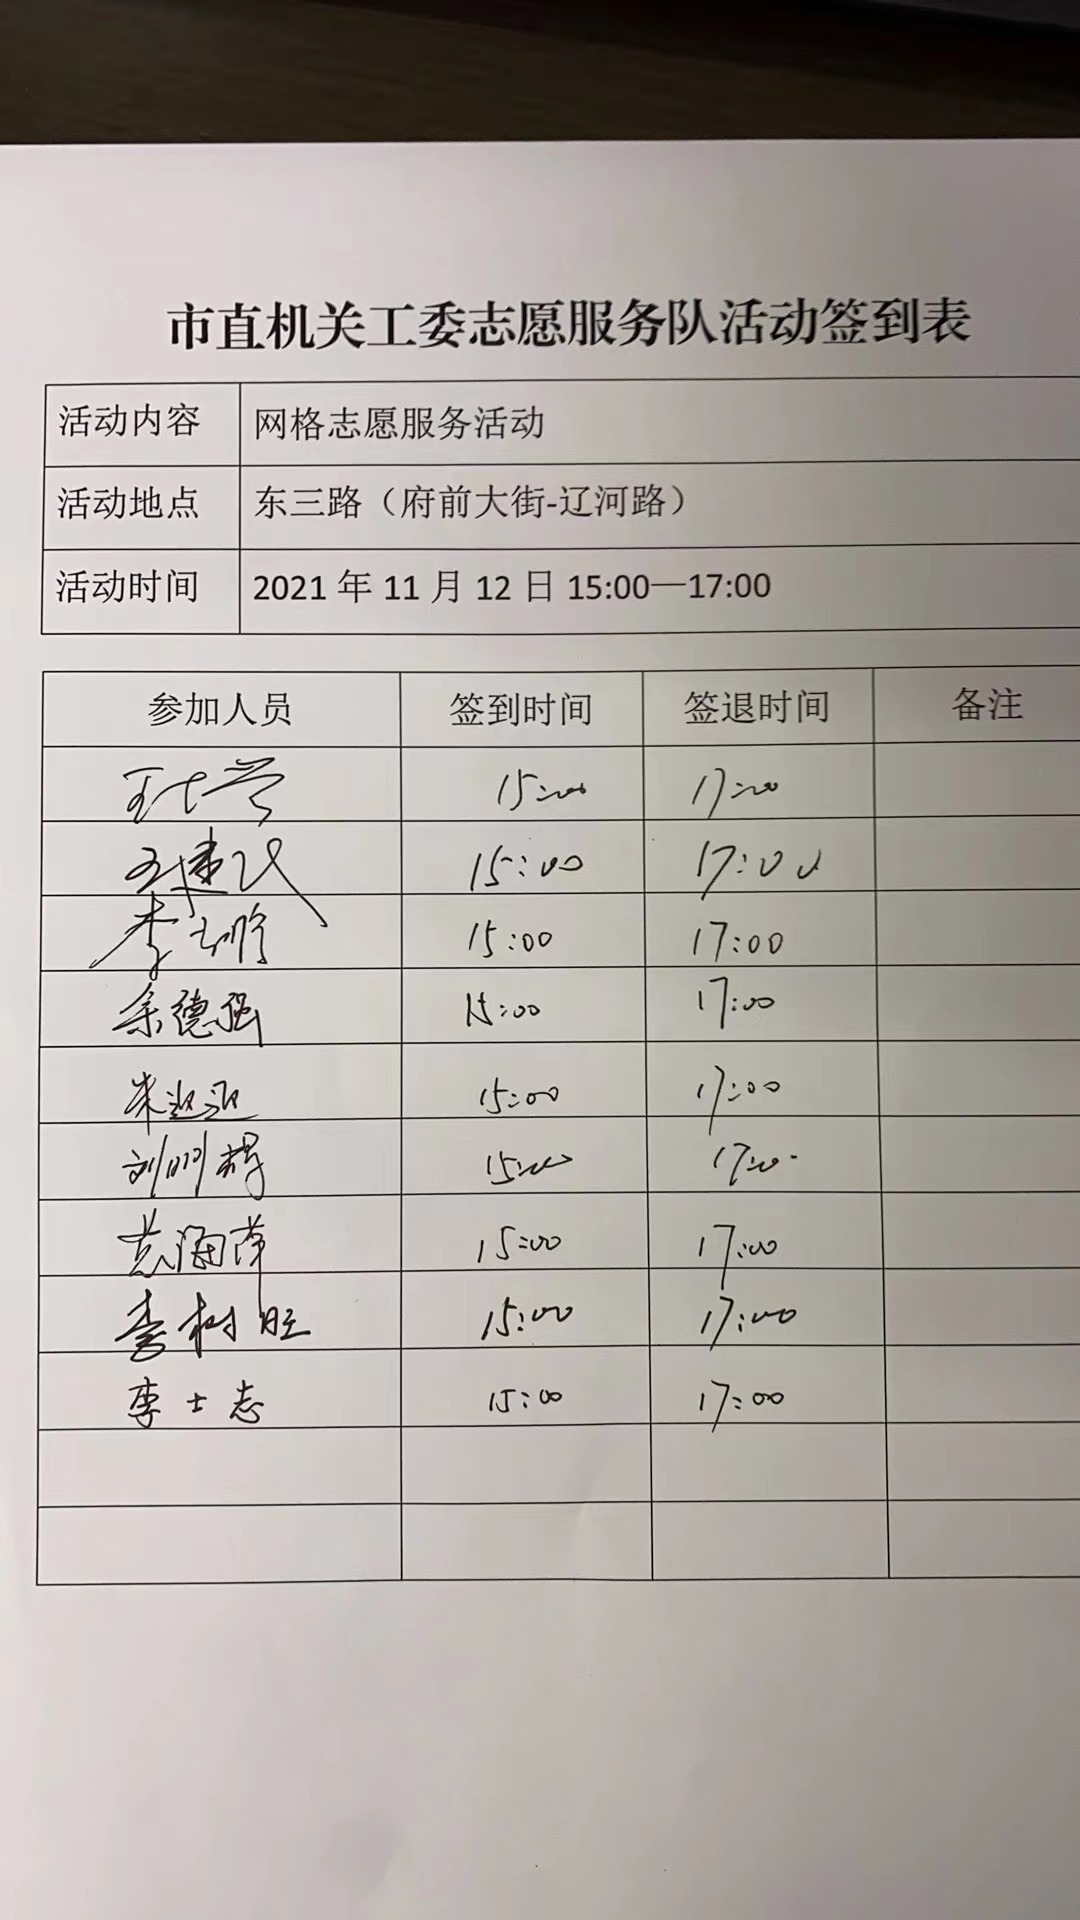 市直机关工委志愿服务队活动签到表
活动内容 网格志愿服务活动
活动地点 东三路（府前大街-辽河路）
活动时间 2021 年 11 月 12 日 15:00—17:00
参加人员 签到时间 签退时间 备注
15:00 17:00
王建民 15:00 17:00
李 15:00 17:00
余德强 15:00 17:00
朱迎迎 15:00 17:00
刘明辉 15:00 17:00
黄海萍 15:00 17:00
李树旺 15:00 17:00
李士志 15:00 17:00